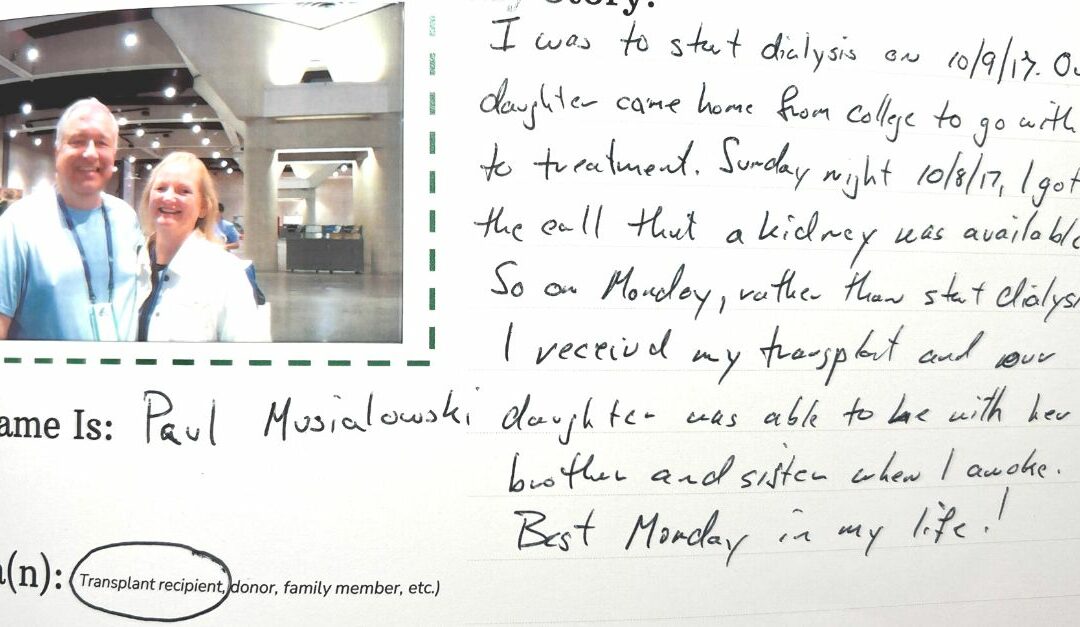 Story:
I was to start dialysis on 10/9/17. Ou
daughter came home from college to go with
to treatment. Sunday night 10/8/17, I got
the call that a kidney was available
So on Monday, rather than start dialys
I received my transplant and our
daughter was able to be with her
brother and sister when I awoke.
Best Monday in my life!
ame Is: Paul Musialowski
(n): Transplant recipient, donor, family member, etc.)